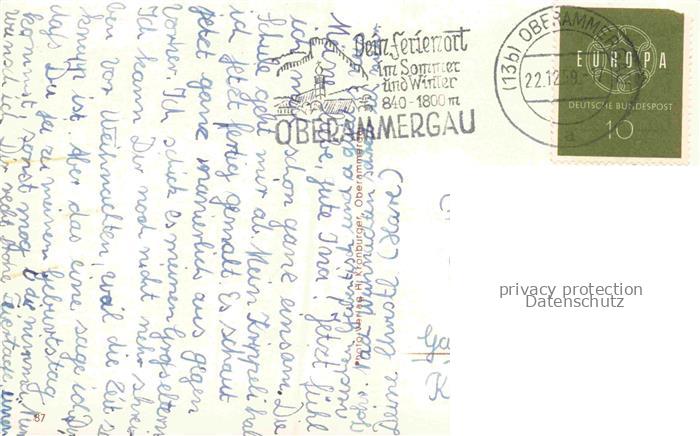 Dein Ferienort
im Sommer
und Winter
840 - 1800 m
OBERAMMERGAU
(13b) OBERAMMERGAU
22.12.59.
a
EUROPA
DEUTSCHE BUNDESPOST
10
Meine liebe, gute Irma! Jetzt fühl
ich mich schon ganz einsam. Die
Schule geht mir ab. Mein Kripperl hab
ich jetzt fertig gemalt. Es schaut
jetzt ganz manierlich aus gegen
vorher. Ich schick es meinen Großeltern
Ich kann Dir noch nicht mehr schrei
ben vor Weihnachten, weil die Zeit so
knapp ist. Aber das eine sage ich Dir
daß Du ja zu meinem Geburtstag
kommst sonst mag
wünsch ich Dir recht frohe Feiertage, einen
Deine
Photo-Verlag H. Kronburger, Oberammergau
87
Ga
K
privacy protection
Datenschutz